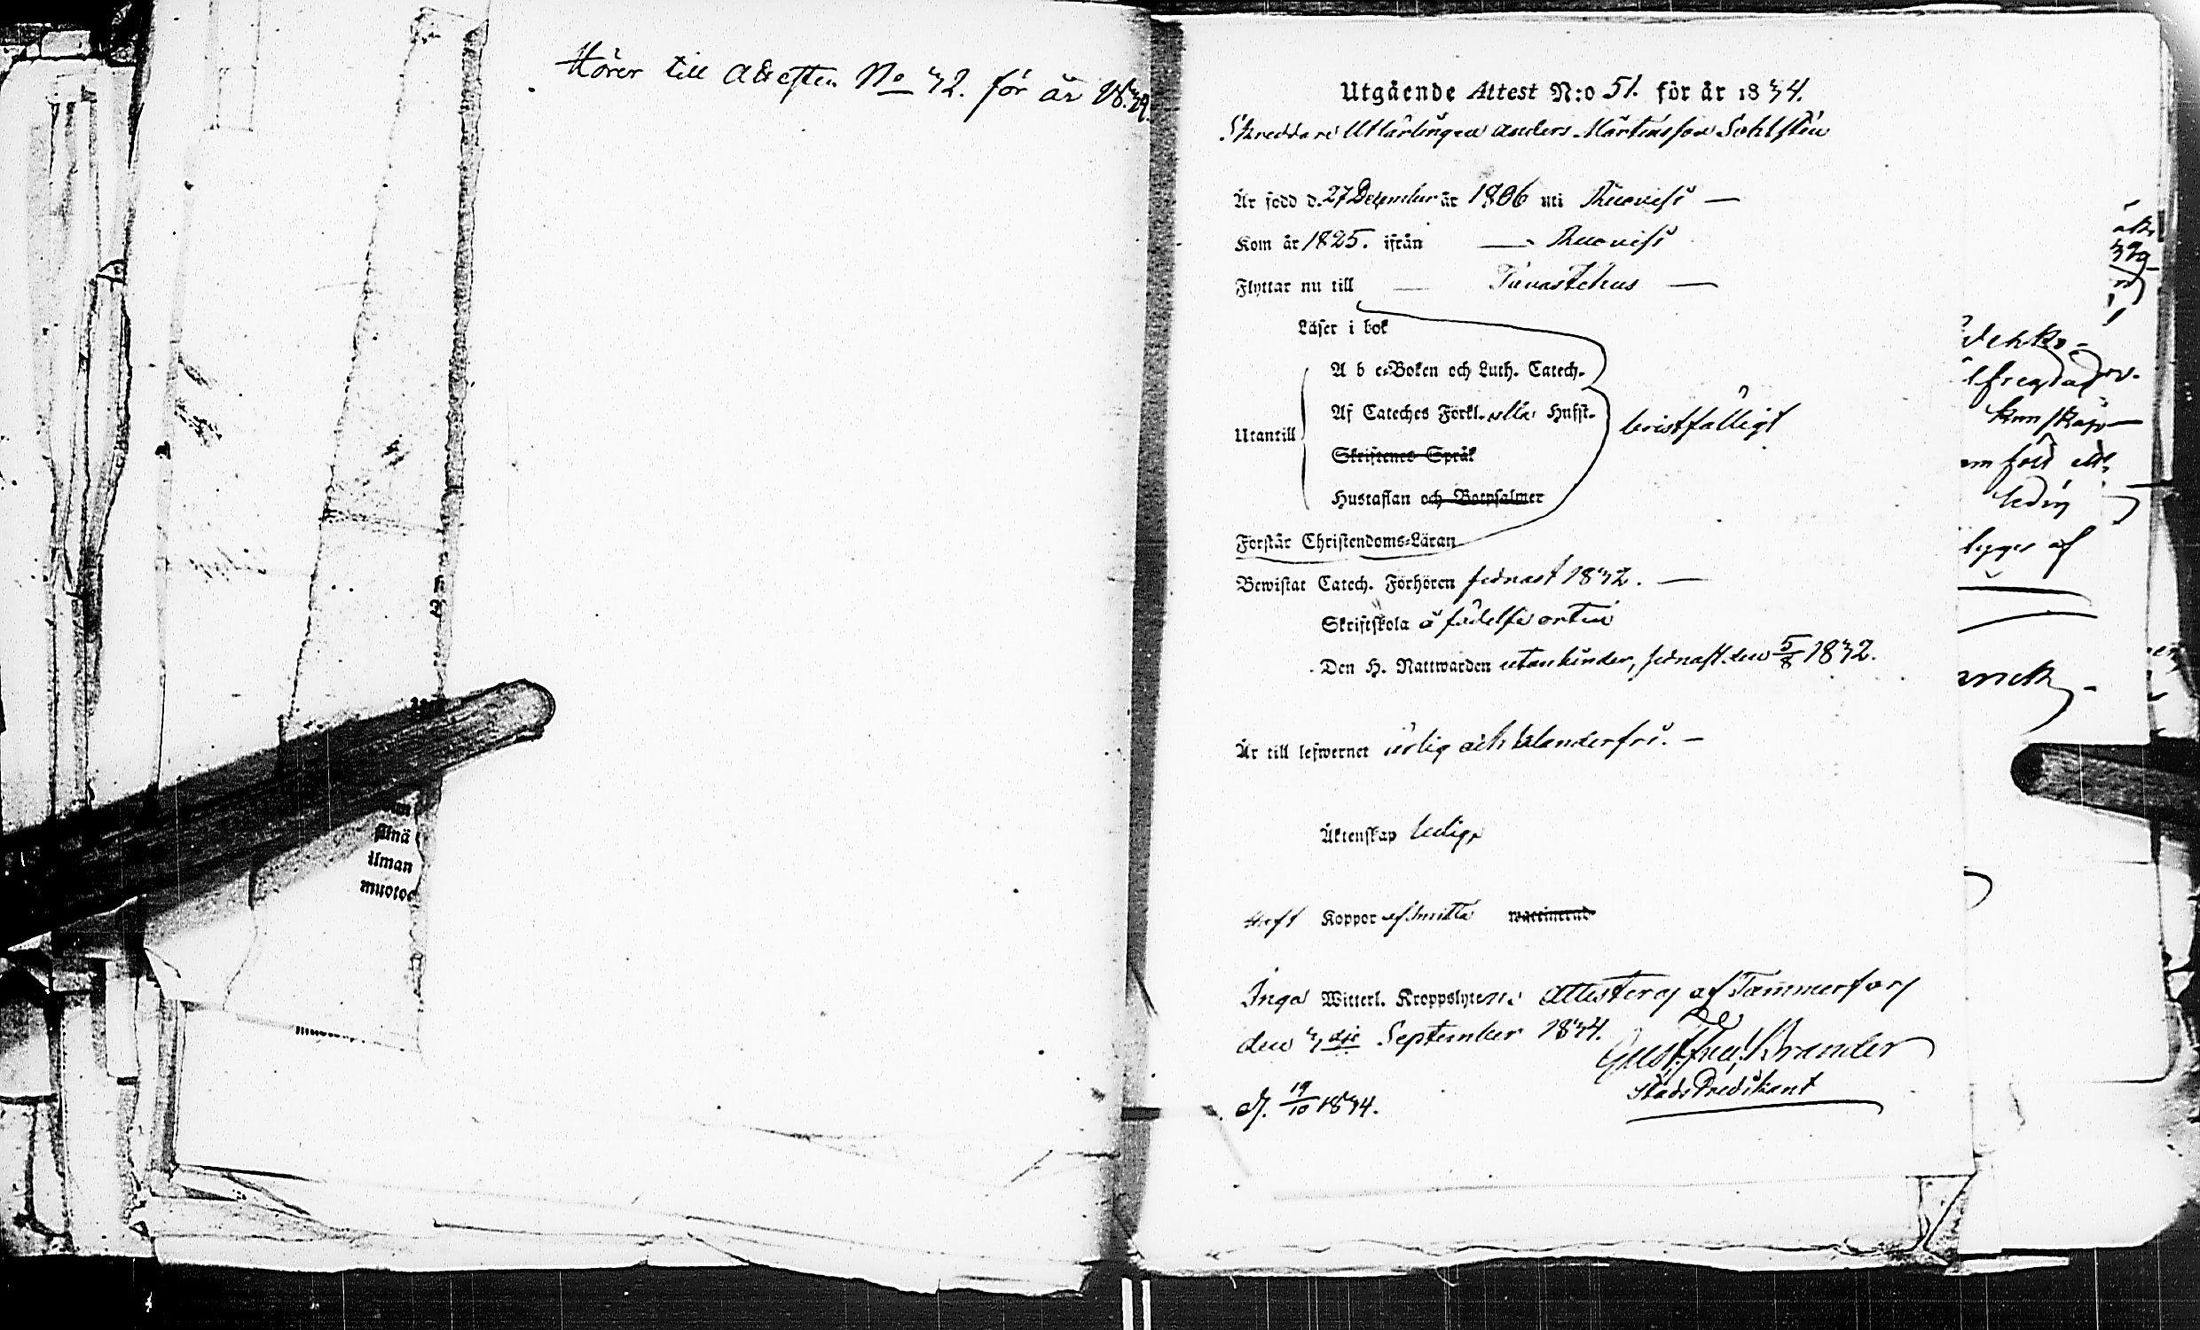 Hörer till Attesten No 32. för år 1834.
sinä
uman
muotoo
Utgående Attest N:o 51. för år 1834.
Skreddare Utlärlingen Anders Mårtensson Sohlstén
Är född d. 27 December år 1806 uti Ruovesi —
Kom år 1825. ifrån — Ruovesi
Flyttar nu till — Tavastehus —
Läser i bok
A b c-Boken och Luth. Catech.
Af Cateches Förkl. alla Hufst. bristfälligt
Utantill
Skriftenes Språk
Hustaflan och Botpsalmer
Förstår Christendoms-Läran
Bewistat Catech. Förhören sednast 1832. —
Skriftskola å födelse orten
Den H. Nattwarden utan hinder, sednast den 5/8 1832.
Är till lefwernet ärlig och klanderfri. —
Äktenskap ledig,
Haft Koppor af smitta waccinerad
Inga Witterl. Kroppslyten: Attesteras af Tammerfors
den 3dje September 1834.
Gust. Fred. Brander
StadsPredikant
19/10 1834.
kunskap
ledig
af